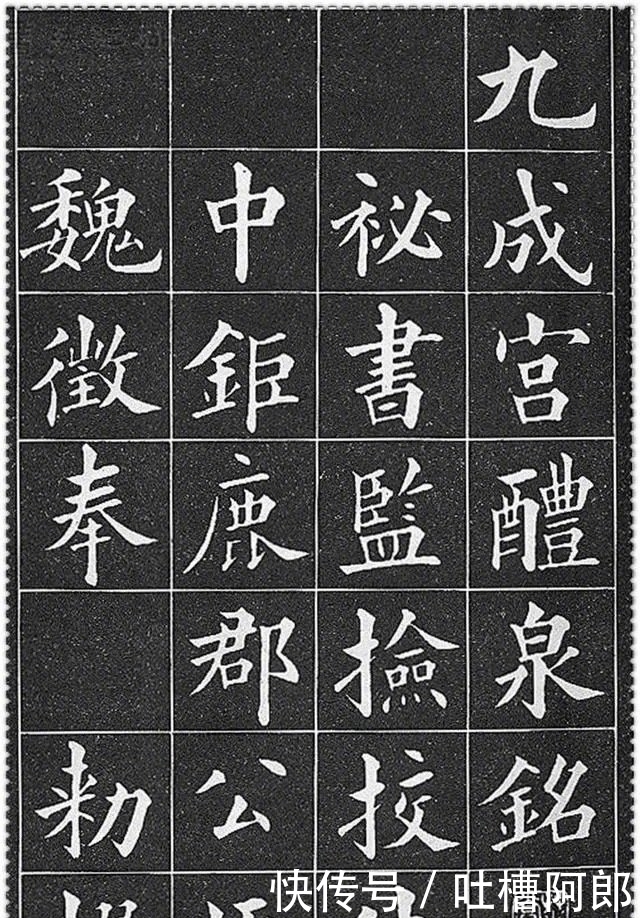 九成宮醴泉銘
祕書監撿挍
中鉅鹿郡公
魏徵奉勑
快传号 / 吐槽阿郎